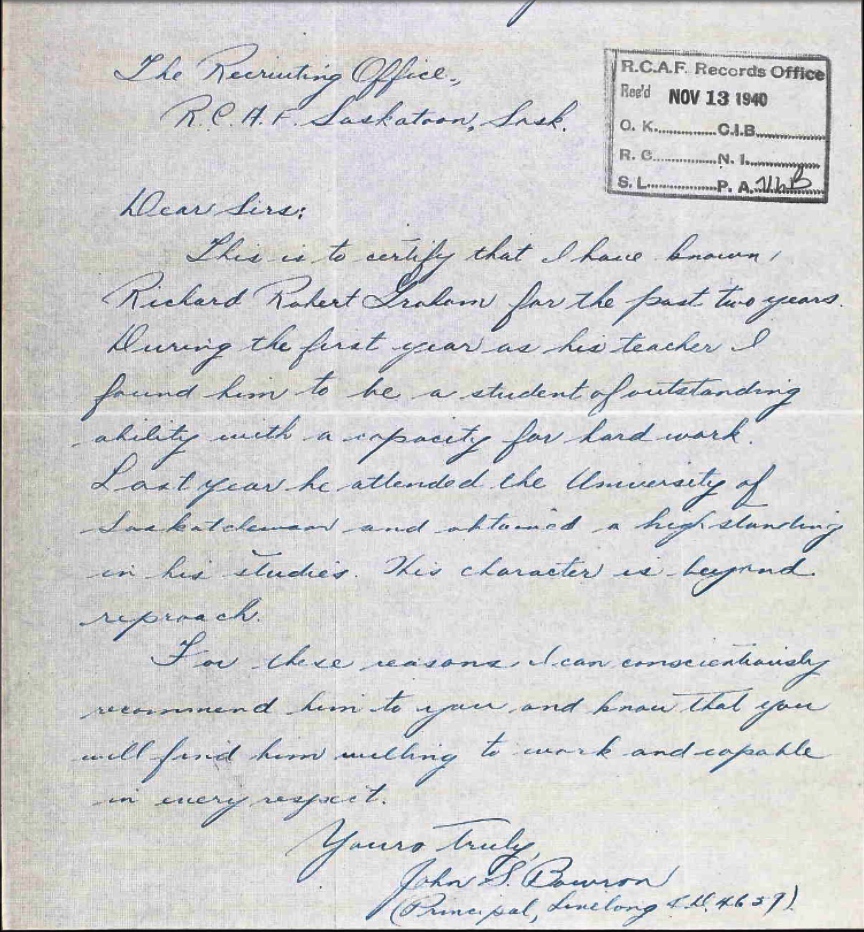 The Recruiting Office.,
R.C.A.F. Saskatoon, Sask.
R.C.A.F. Records Office
Rec'd NOV 13 1940
O. K...............C.I.B...............
R. C...............N. I...............
S. L...............P. A.
Dear Sirs:
This is to certify that I have known
Richard Robert Graham for the past two years.
During the first year as his teacher I
found him to be a student of outstanding
ability with a capacity for hard work.
Last year he attended the University of
Saskatchewan and obtained a high standing
in his studies. His character is beyond
reproach.
For these reasons I can conscientiously
recommend him to you and know that you
will find him willing to work and capable
in every respect.
Yours truly,
John S. Bowron
(Principal, S.D. 4659)